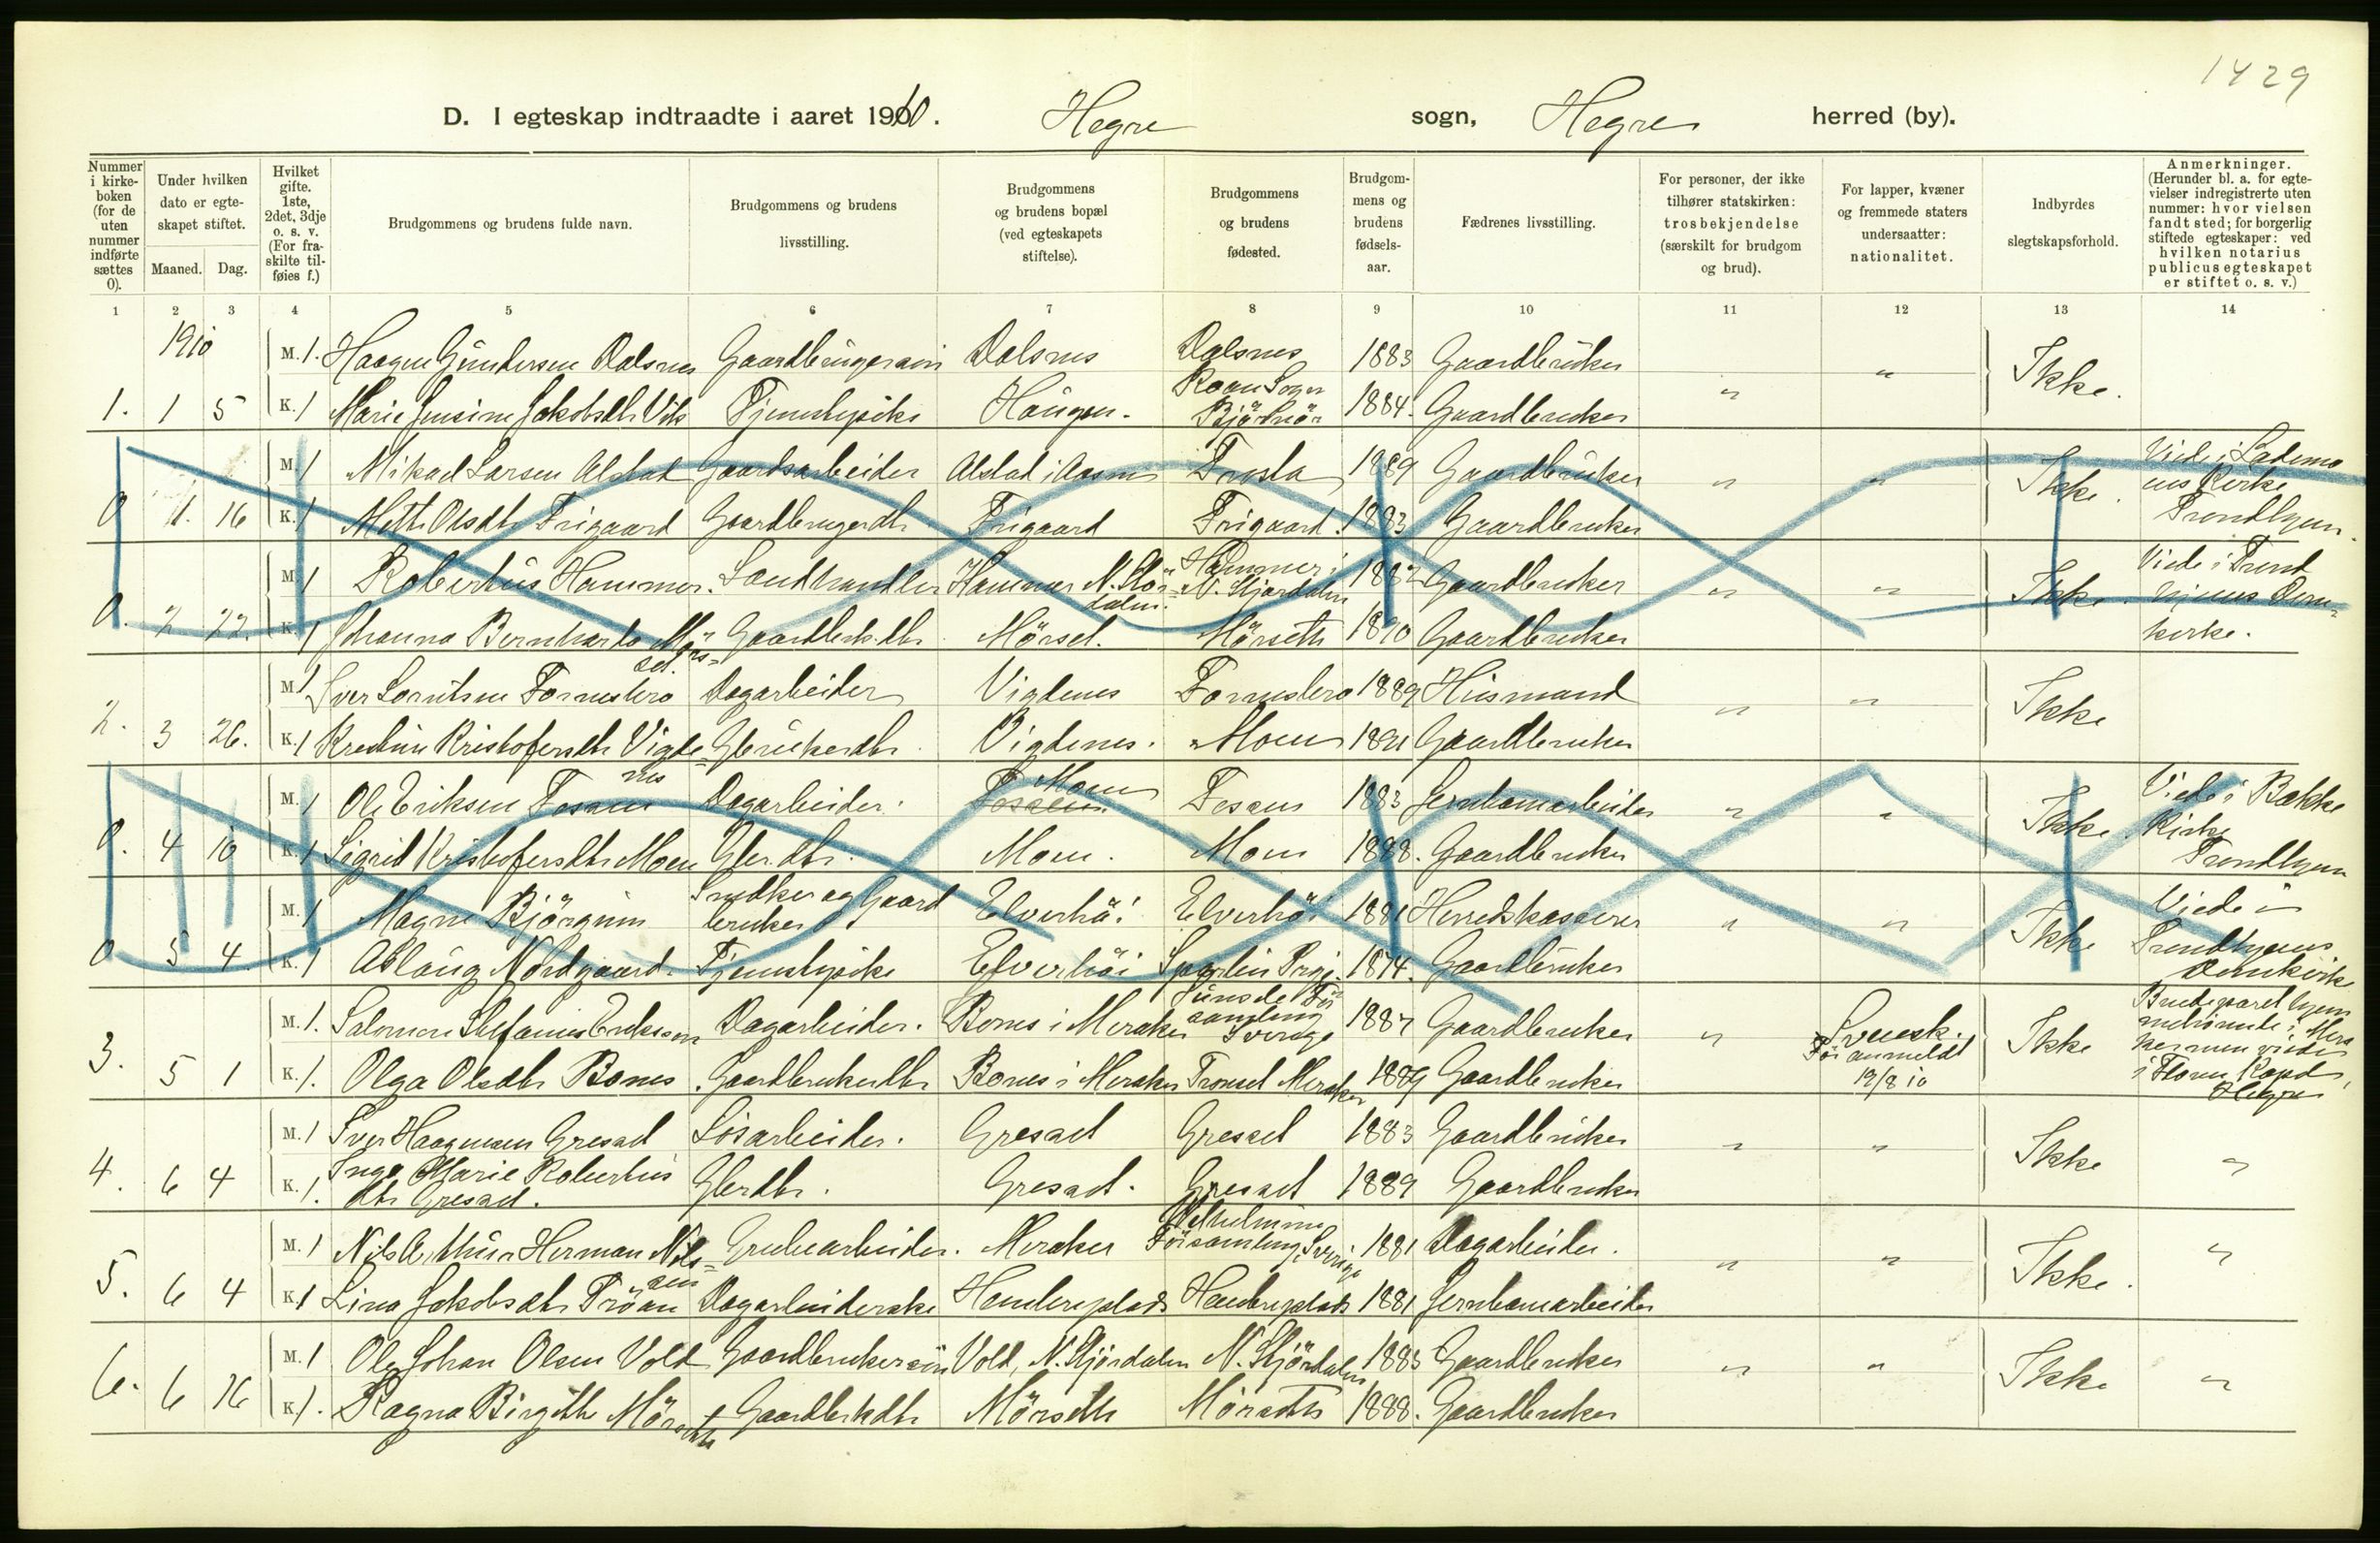 1429
D. I egteskap indtraadte i aaret 1910. Hegre sogn, Hegre herred (by).
Nummer i kirke-boken (for de uten nummer indførte sættes 0).
Under hvilken dato er egte-skapet stiftet. Maaned. Dag.
Hvilket gifte. 1ste, 2det, 3dje o. s. v. (For fra-skilte til-føies f.)
Brudgommens og brudens fulde navn.
Brudgommens og brudens livsstilling.
Brudgommens og brudens bopæl (ved egteskapets stiftelse).
Brudgommens og brudens fødested.
Brudgom-mens og brudens fødsels-aar.
Fædrenes livsstilling.
For personer, der ikke tilhører statskirken: trosbekjendelse (særskilt for brudgom og brud).
For lapper, kvæner og fremmede staters undersaatter: nationalitet.
Indbyrdes slegtskapsforhold.
Anmerkninger. (Herunder bl. a. for egte-vielser indregistrerte uten nummer: hvor vielsen fandt sted; for borgerlig stiftede egteskaper: ved hvilken notarius publicus egteskapet er stiftet o. s. v.)
1 2 3 4 5 6 7 8 9 10 11 12 13 14
1910 M. 1. Haagen Gundersen Dalsnes Gaardbrugersøn Dalsnes Dalsnes 1883 Gaardbruker „ „ Ikke.
1. 1 5 K. 1 Marie Jensine Jakobsdtr Vik Tjenestepike Haugen. Roan Sogn Björnör 1884. Gaardbruker
M. 1 Mikael Larsen Alstad Gaardsarbeider Alstad i Aasen Frosta 1889 Gaardbruker „ „ Ikke. Viede i Lademo
0 1. 16 K. 1 Meth Olsdtr Frigaard Gaardbrugerdtr Frigaard Frigaard. 1883 Gaardbruker ens Kirke Trondhjem.
M. 1 Robertus Hammer. Landhandler Hammer N. Stjör=dalen. Hammer i N. Stjørdalen 1882 Gaardbruker „ „ Ikke. Viede i Trond
0. 2 22. K. 1 Johanna Bernharda Mörs=set. Gaardbrk.dtr. Mörset. Mörseth 1890 Gaardbruker hjems Dom=kirke.
M. 1 Iver Lorntsen Fornesbro Dagarbeider Vigdenes Fornesbro 1889 Husmand „ „ Ikke
2. 3 26. K. 1 Kristofersdtr Vigde=nes Gbrukerdtr. Vigdenes. Moen 1891 Gaardbruker
M. 1 Ole Eriksen Fossum Dagarbeider. Moen Fossum 1883 Jernbanearbeider „ „ Ikke. Viede i Bakke
0. 4 10 K. 1 Sigrid Kristofersdtr Moen Gbr.dtr. Moen. Moen 1888. Gaardbruker Kirke Trondhjem
M. 1 Magne Björgum Snedker og Gaardbruker Elverhöi Elverhöi 1881 Herredskasserer „ „ Ikke Viede i
0 5 4. K. 1 Aslaug Nordgaard. Tjenestepike Elverhöi 1874. Gaardbruker Trondhjems Domkirke
M. 1. Salomon Stefanus Eriksson Dagarbeider. Bones i Meraker Sverige 1887 Gaardbruker „ Svensk. Ikke
3. 5 1 K. 1. Olga Olsdtr Bones. Gaardbrukerdtr Bones i Meraker Meraker 1889 Gaardbruker anmeldt 19/8 10 i Hegre
M. 1 Iver Haagensen Gresset Lösarbeider. Gresset Gresset 1883 Gaardbruker „ „ Ikke „
4. 6 4 K. 1. Inga Marie Robertus dtr Gresset. Gbrdtr. Gresset. Gresset 1889 Gaardbruker
M. 1 Nils Arthur Herman Nils=sen Grubearbeider. Meraker Vilhelmina Församling, Sverige 1881 Dagarbeider. „ „ Ikke. „
5. 6 4 K. 1 Lina Jakobsdtr Tröan Dagarbeiderske 1881 Jernbanearbeider
M. 1 Ole Johan Olsen Vold Gaardbrukersön Vold, N. Stjördalen N. Stjördalen 1883 Gaardbruker „ „ Ikke „
6. 6 16 K. 1. Ragna Birgitte Mörseth Gaardbrkdtr Mörseth Mörseth 1888. Gaardbruker